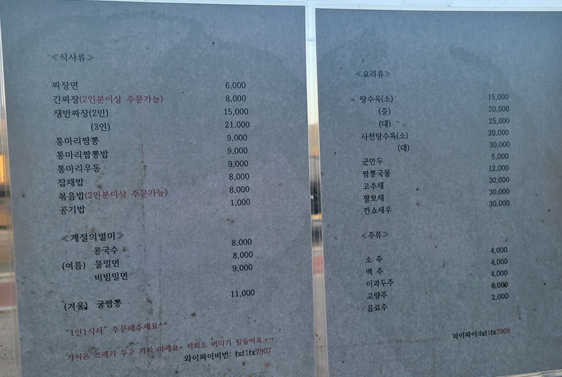 ≪식사류≫
짜장면 6,000
간짜장(2인분이상 주문가능) 8,000
쟁반짜장(2인) 15,000
(3인) 21,000
통마리짬뽕 9,000
통마리짬뽕밥 9,000
통마리우동 9,000
잡채밥 8,000
볶음밥(2인분이상 주문가능) 8,000
공기밥 1,000
≪계절의별미≫
콩국수 8,000
(여름) 물밀면 8,000
비빔밀면 9,000
(겨울) 굴짬뽕 11,000
"1인1식사" 주문해주세요^^
가져온 쓰레기 두고 가지 마세요~ 저희도 버리기 힘들어요
와이파이비번:
≪요리류≫
탕수육(소) 15,000
(중) 20,000
(대) 25,000
사천탕수육(소) 20,000
(대) 30,000
군만두 5,000
짬뽕국물 12,000
고추채 30,000
팔보채 30,000
깐쇼새우 30,000
≪주류≫
소 주 4,000
맥 주 4,000
이과두주 4,000
고량주
음료수 2,000
와이파이: